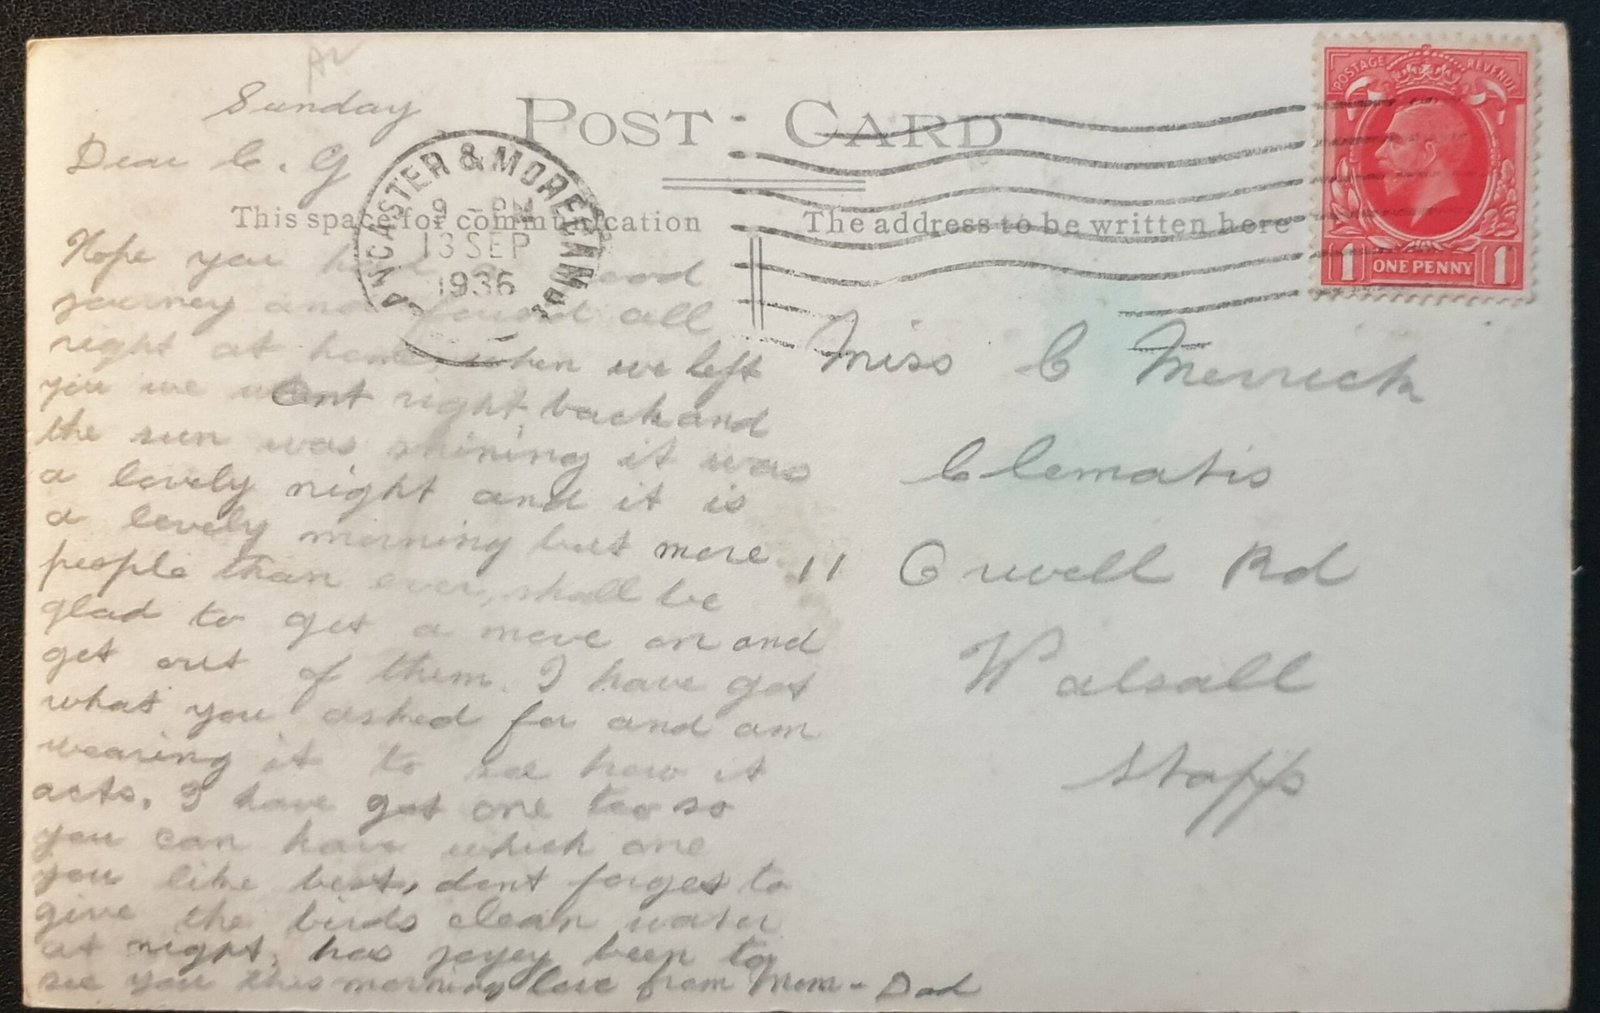 Sunday
POST CARD
POSTAGE REVENUE
Dear C. G
LANCASTER & MORECAMBE
9 - PM
13 SEP
1936
This space for communication
The address to be written here
1 ONE PENNY 1
Hope you had good
journey and found all
right at home, when we left
you we went right back and
the sun was shining it was
a lovely night and it is
a lovely morning but more
people than ever, shall be
glad to get a move on and
get out of them. I have got
what you asked for and am
wearing it to see how it
acts. I have got one too so
you can have which one
you like best, dont forget to
give the birds clean water
at night, has been to
see you this morning love from Mom - Dad
Miss C Merrick
Clematis
11 Orwell Rd
Walsall
Staffs